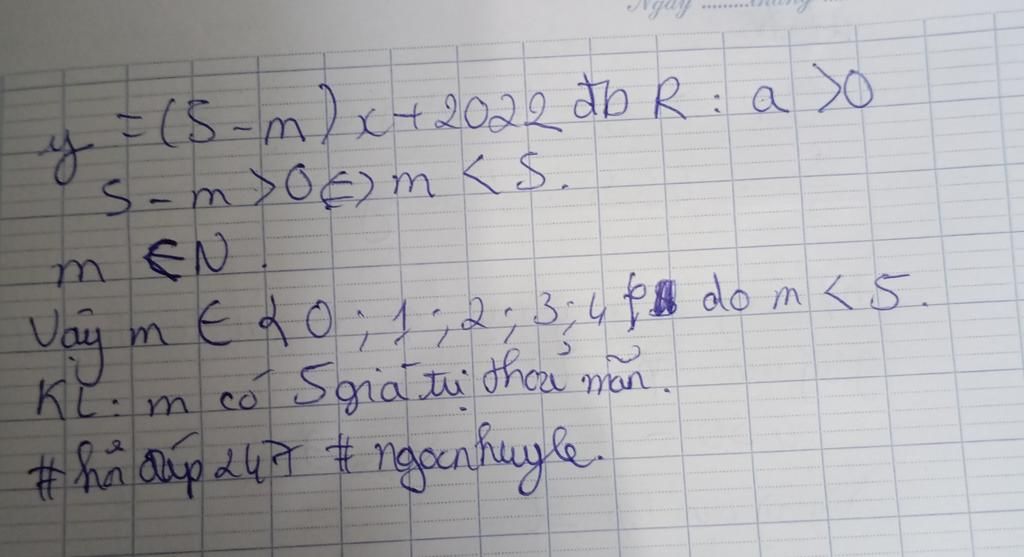 Ngày ............tháng ....
y = (5 - m)x + 2022 đb R : a > 0
5 - m > 0 <=> m < 5.
m ∈ N.
Vậy m ∈ {0; 1; 2; 3; 4} do m < 5.
KL: m có 5 giá trị thoả mãn.
# hỏi đáp 247 # ngocnhuyle.